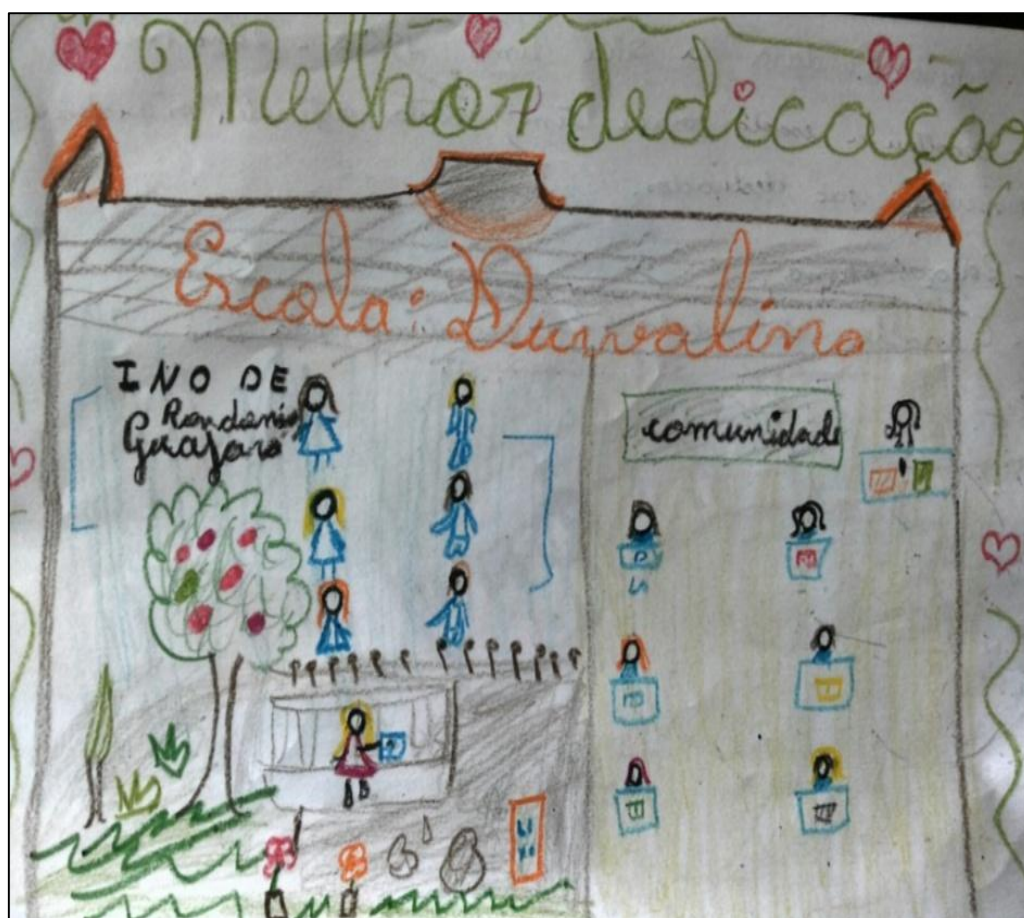 Melhor dedicação
Escola: Durvalino
INO DE
Rondônia
Guajará
comunidade
LI
XO